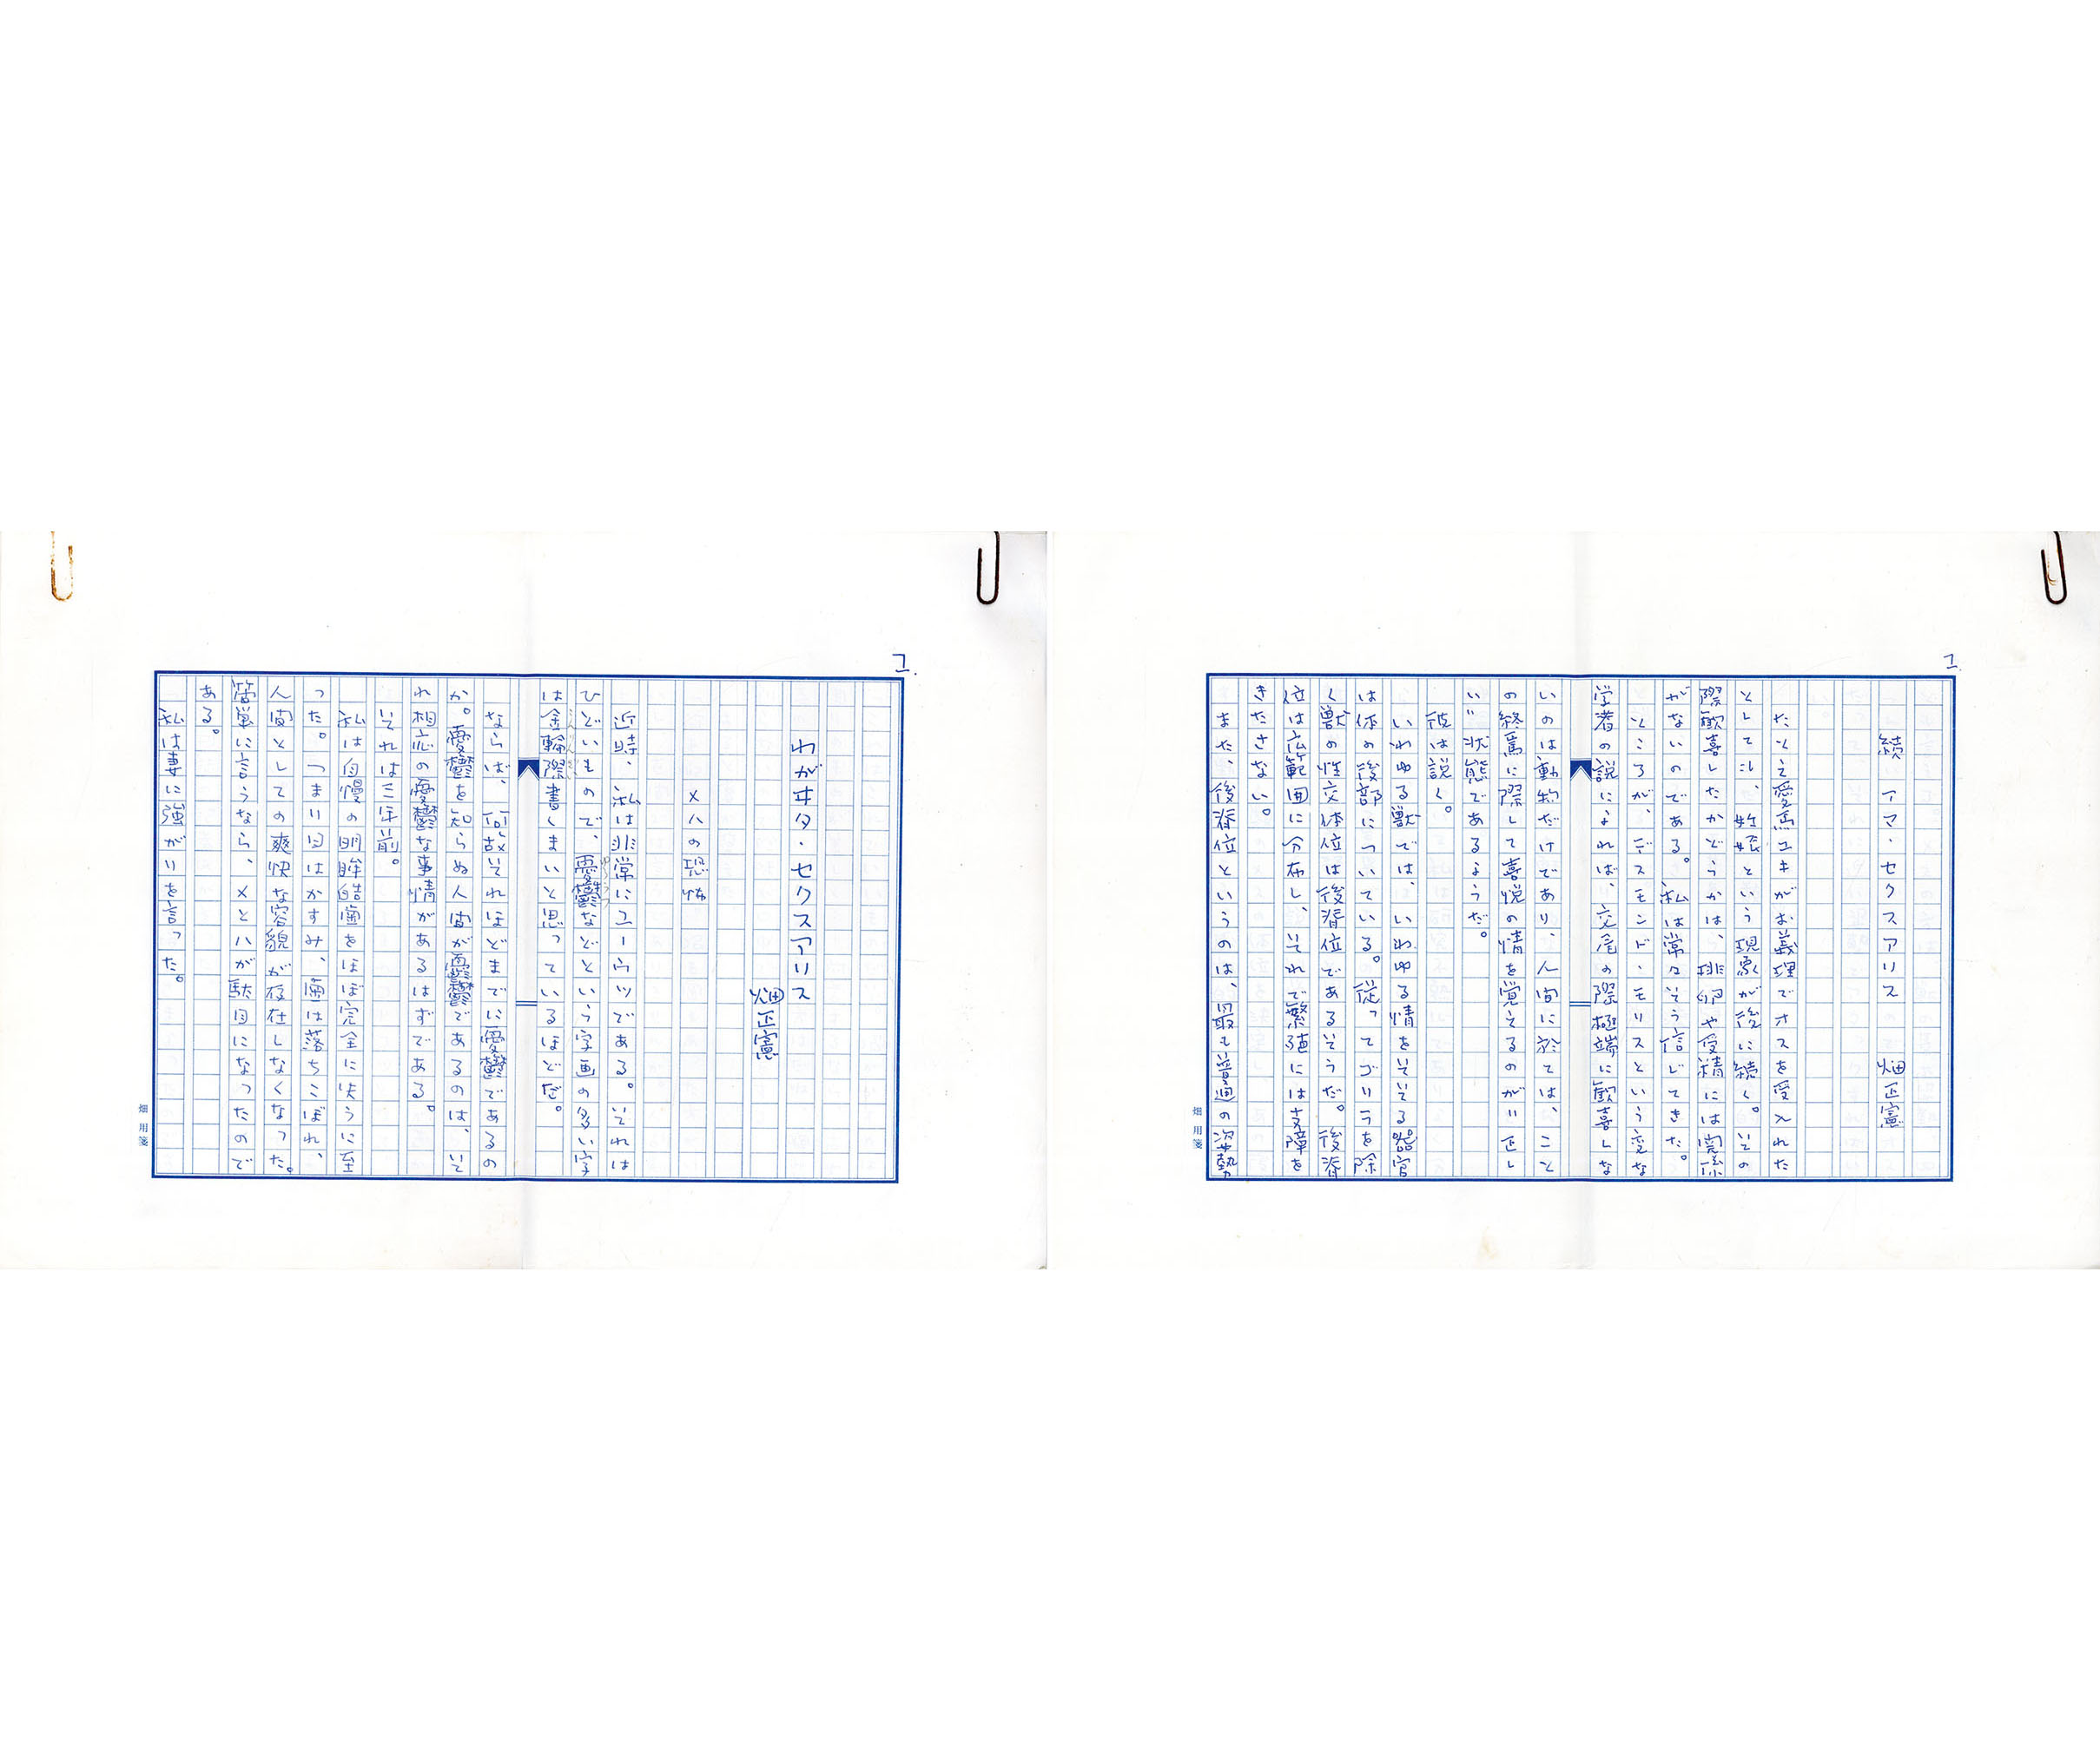 1.
続　アマ・セクスアリス　畑正憲
たとえ愛馬ユキがお義理でオスを受入れた
としても、妊娠という現象が後に続く。その
際歓喜したかどうかは、排卵や受精には関係
がないのである。私は常々そう信じてきた。
ところが、デスモンド・モリスという変な
学者の説によれば、交尾の際極端に歓喜しな
いのは動物だけであり、人間に於ては、こと
の終焉に際して喜悦の情を覚えるのが"正し
い"状態であるようだ。
彼は説く。
いわゆる獣では、いわゆる情をそそる器官
は体の後部についている。従ってゴリラを除
く獣の性交体位は後背位であるそうだ。後背
位は広範囲に分布し、それで繁殖には支障を
きたさない。
また、後背位というのは、最も普通の姿勢
畑用箋
1.
わがヰタ・セクスアリス
畑正憲
メハの恐怖
近時、私は非常にユーウツである。それは
ひどいもので、憂鬱などという字画の多い字
ゆううつ
は金輪際書くまいと思っているほどだ。
こんりんざい
ならば、何故それほどまでに憂鬱であるの
か。憂鬱を知らぬ人間が憂鬱であるのは、そ
れ相応の憂鬱な事情があるはずである。
それは三年前。
私は自慢の明眸皓歯をほぼ完全に失うに至
った。つまり目はかすみ、歯は落ちこぼれ、
人間としての爽快な容貌が存在しなくなった。
簡単に言うなら、メとハが駄目になったので
ある。
私は妻に強がりを言った。
畑用箋